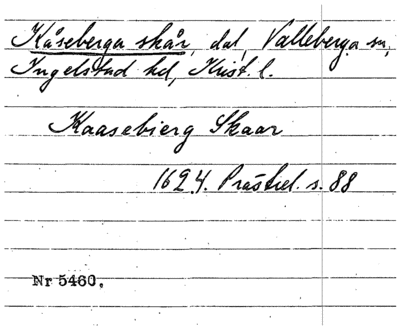 Kåseberga skår, dal, Valleberga sn,
Ingelstad hd, Krist. l.
Kaasebierg Skaar
1624. Prästrel. s. 88
Nr 5460.